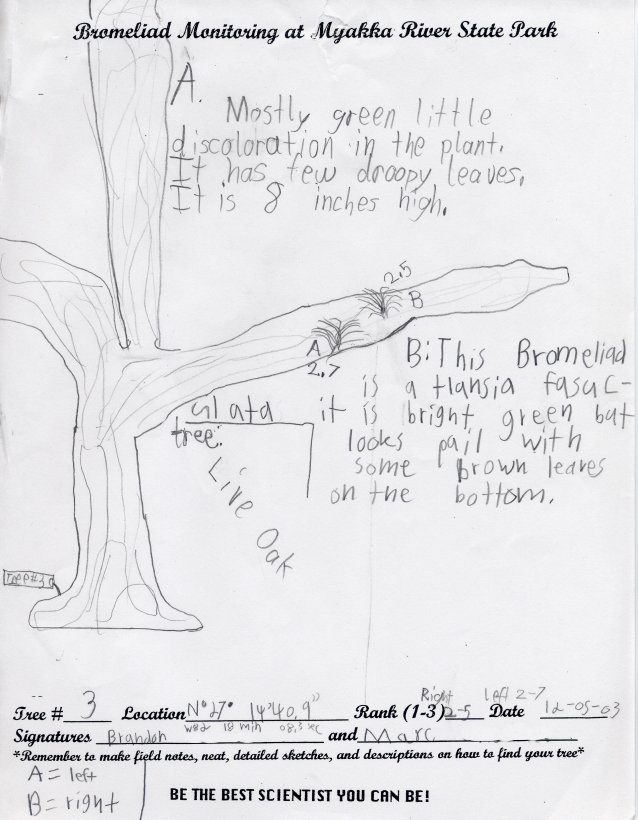 Bromeliad Monitoring at Myakka River State Park
A.
Mostly green little
discoloration in the plant.
It has few droopy leaves.
It is 8 inches high.
2.5
B
A
2.7
B: This Bromeliad
is a tlansia fasuc-
ulata it is bright green but
tree: looks pail with
Live Oak some brown leaves
on the bottom.
Tree #3
Right 2-5 left 2-7
Tree # 3 Location N° 27° 14'40.9" Rank (1-3) Date 12-05-03
18 min 08.3 sec
Signatures Brandon and Marc
*Remember to make field notes, neat, detailed sketches, and descriptions on how to find your tree*
A = left
B = right
BE THE BEST SCIENTIST YOU CAN BE!